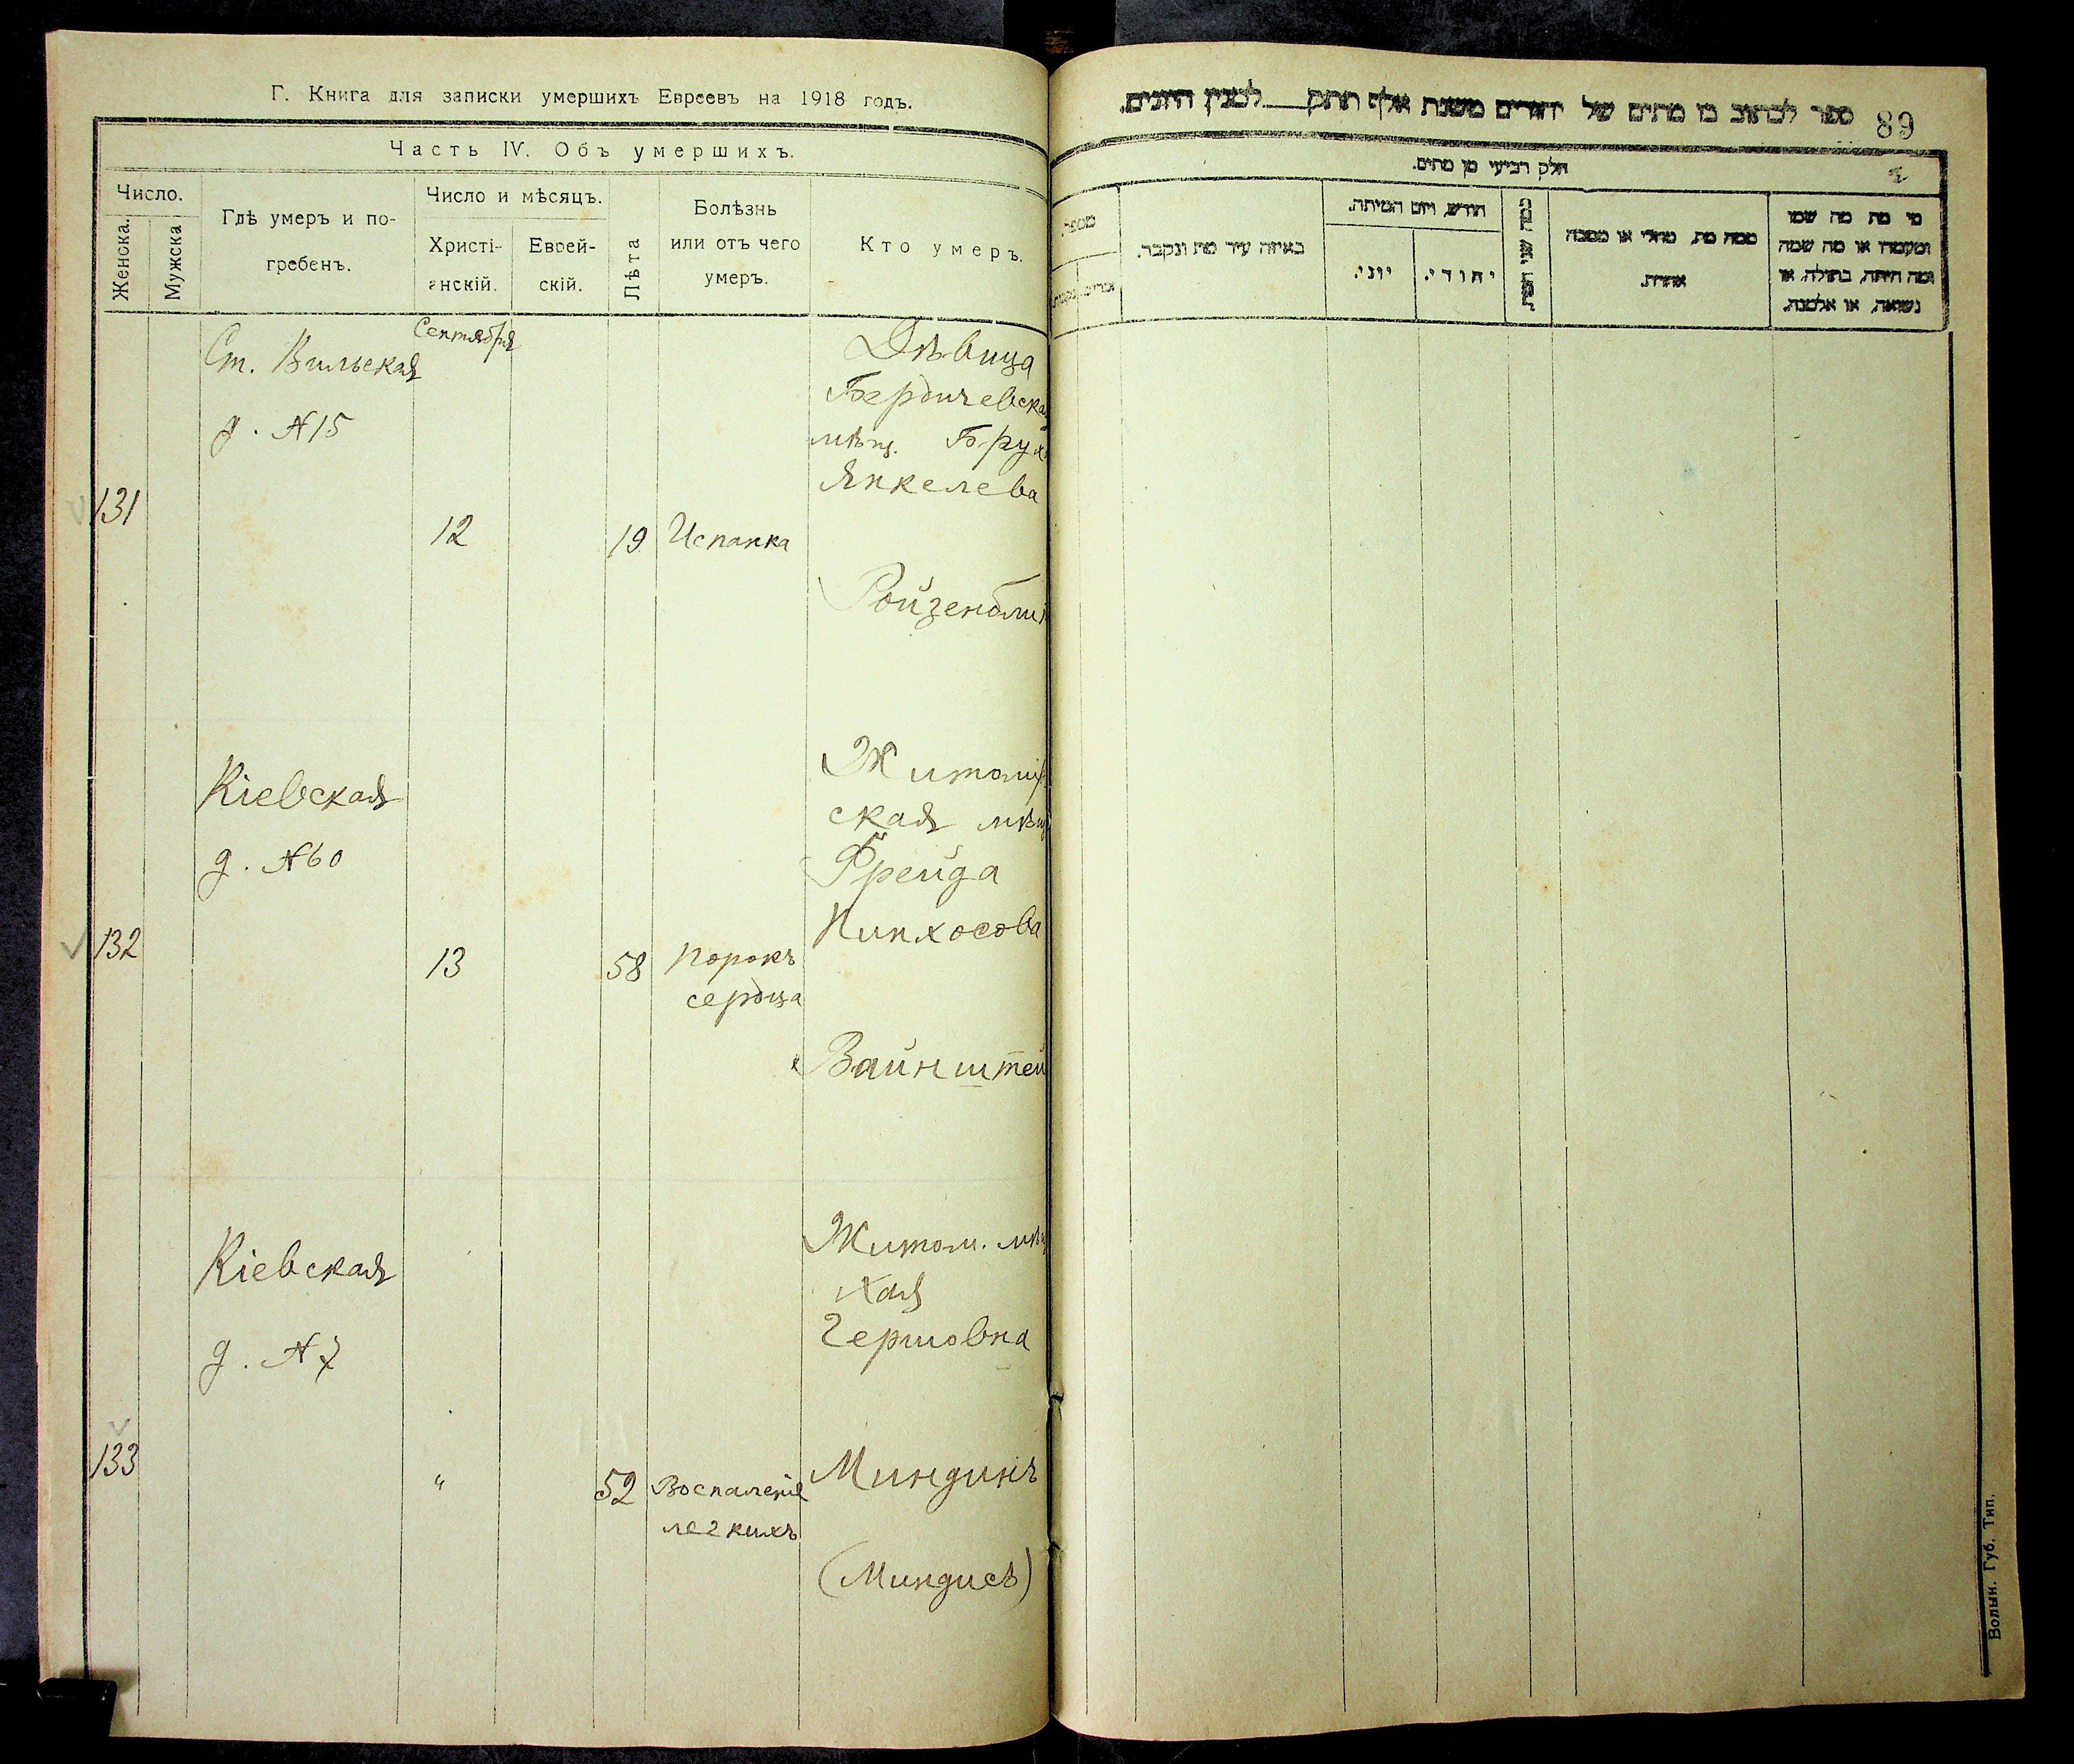 Г. Книга для записки умершихъ Евреевъ на 1918 годъ.
Часть IV. Объ умершихъ.
Число.
Женска.
Мужска
Гдѣ умеръ и по-
гребенъ.
Число и мѣсяцъ.
Христі-
анскій.
Еврей-
скій.
Лѣта
Болѣзнь
или отъ чего
умеръ.
Кто умеръ.
131
Ст. Вильская
д. №15
Сентября
12
19
Испанка
Дѣвица
Бердичевская
мѣщ. Бруха
Янкелева
Ройзенблі
132
Кіевская
д. №60
13
58
Порокъ
сердца
Житомір
ская мѣщ
Фрейда
Пинхосова
Вайнштей
133
Кіевская
д. №7
"
52
Воспаленіе
легкихъ
Житом. мѣщ
Хая
Гершовна
Миндинъ
(Миндисъ)
ספר לכתוב בו מתים של יהודים משנת אלף תתק למנין היונים.
89
חלק רביעי מן מתים.
מספר.
באיזה עיר מת ונקבר.
חודש, ויום המיתה.
יוני.
יהודי.
כמה שני
ממה מת, מחלי או מסבה
אחרת.
מי מת מה שמו
ומעמדו או מה שמה
ומה היתה, בתולה, או
נשואה, או אלמנה.
Волын. Губ. Тип.